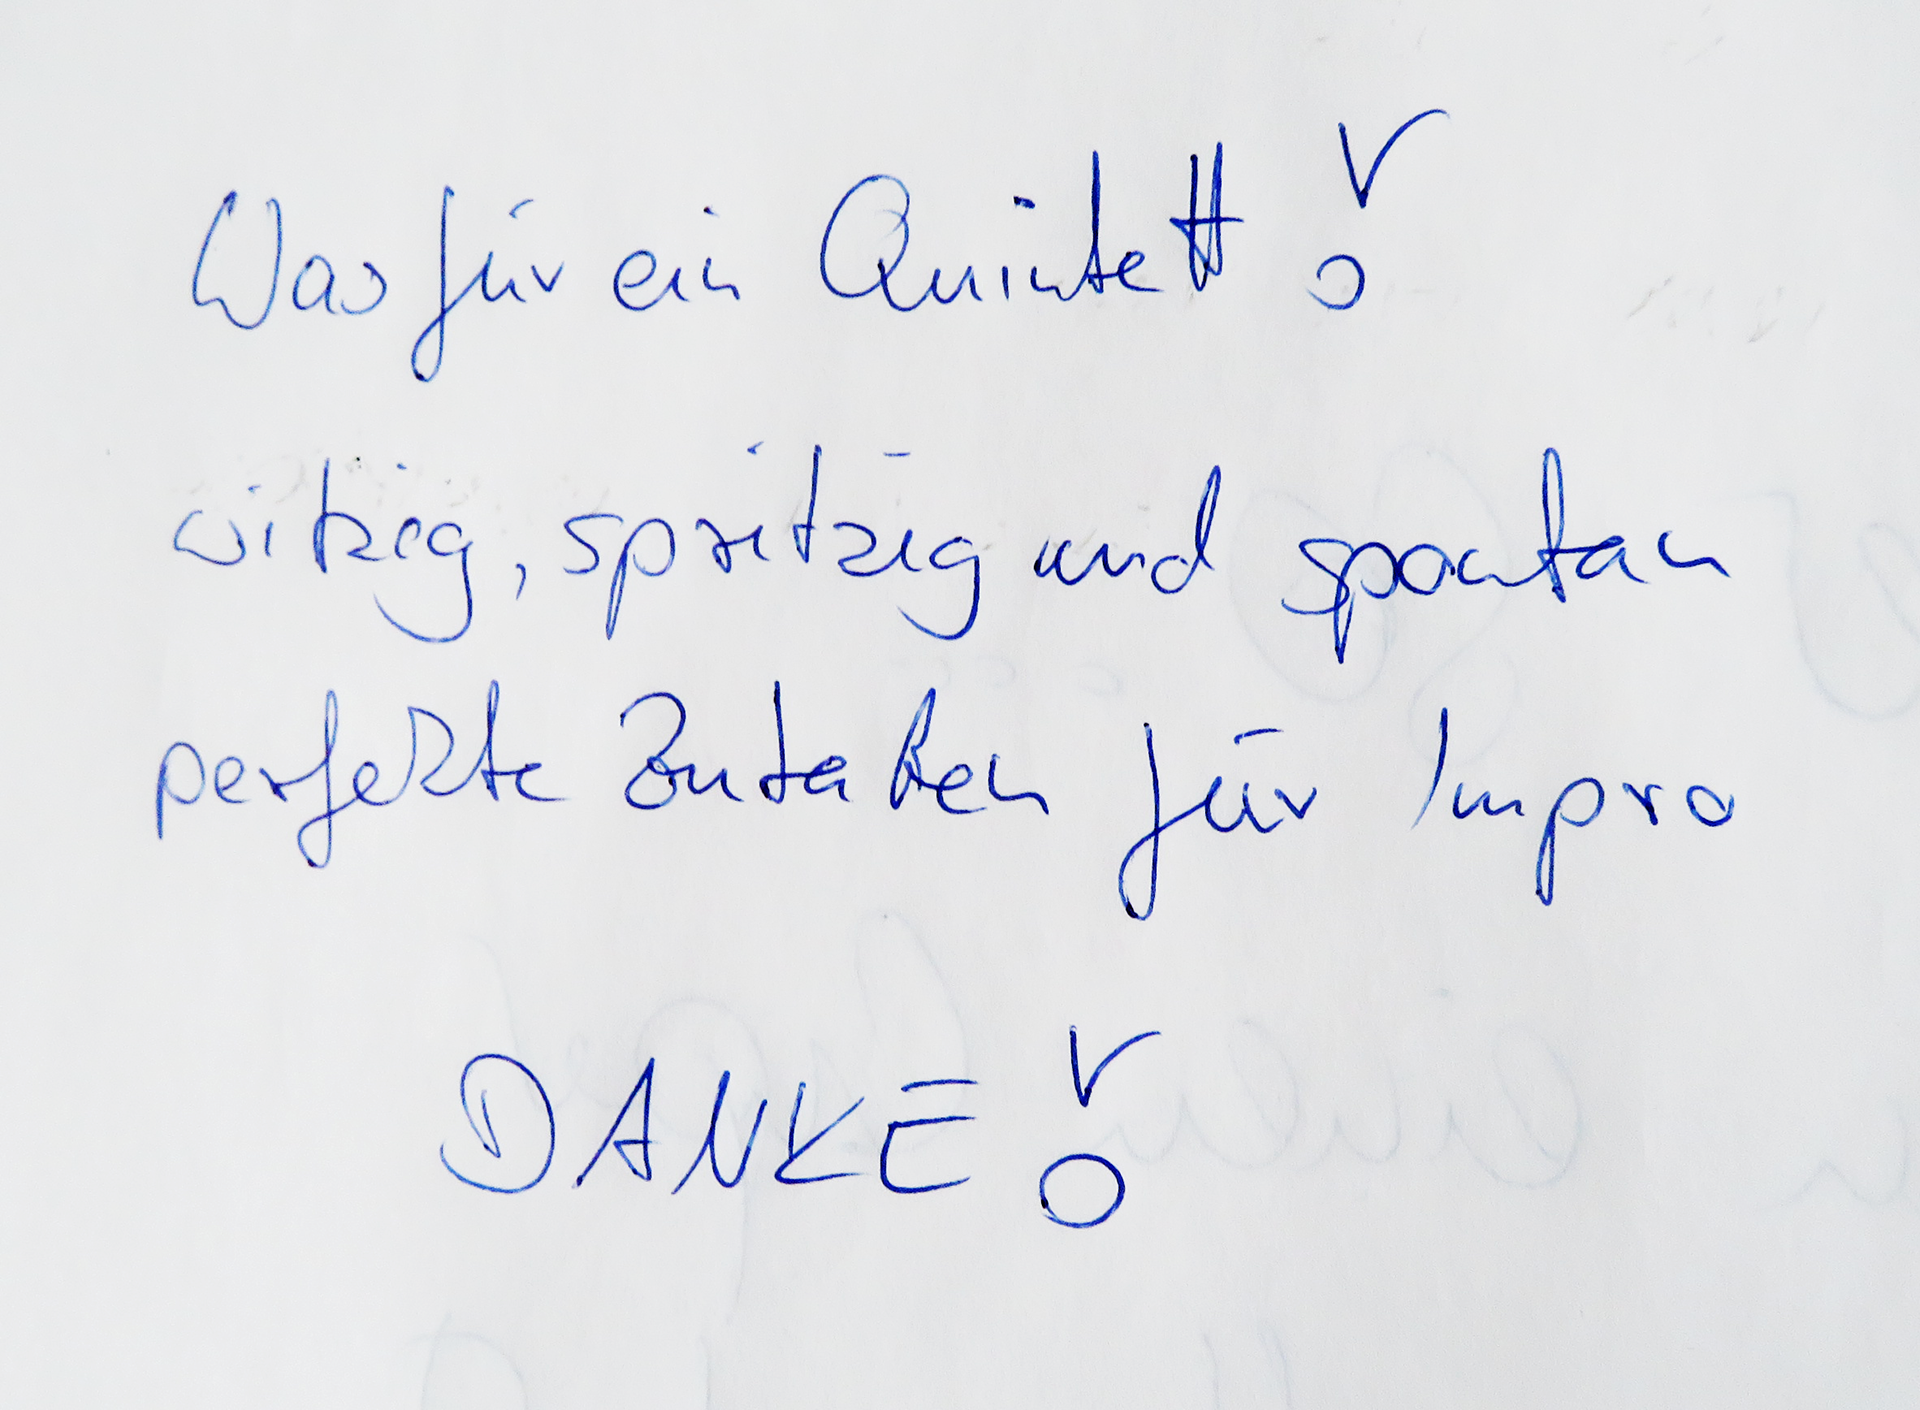 Was für ein Quintett!
witzig, spritzig und spontan
perfekte Zutaten für Impro
DANKE!